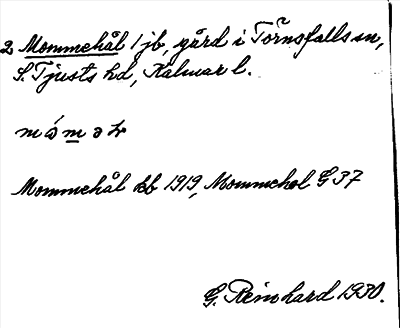 2 Mommehål 1 jb, gård i Törnsfalls sn,
S. Tjusts hd, Kalmar l.
Mommehål kb 1919, Mommehol G 37
G. Reinhard 1930.